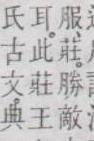 服莊。勝敵
耳。此莊王
氏古文典